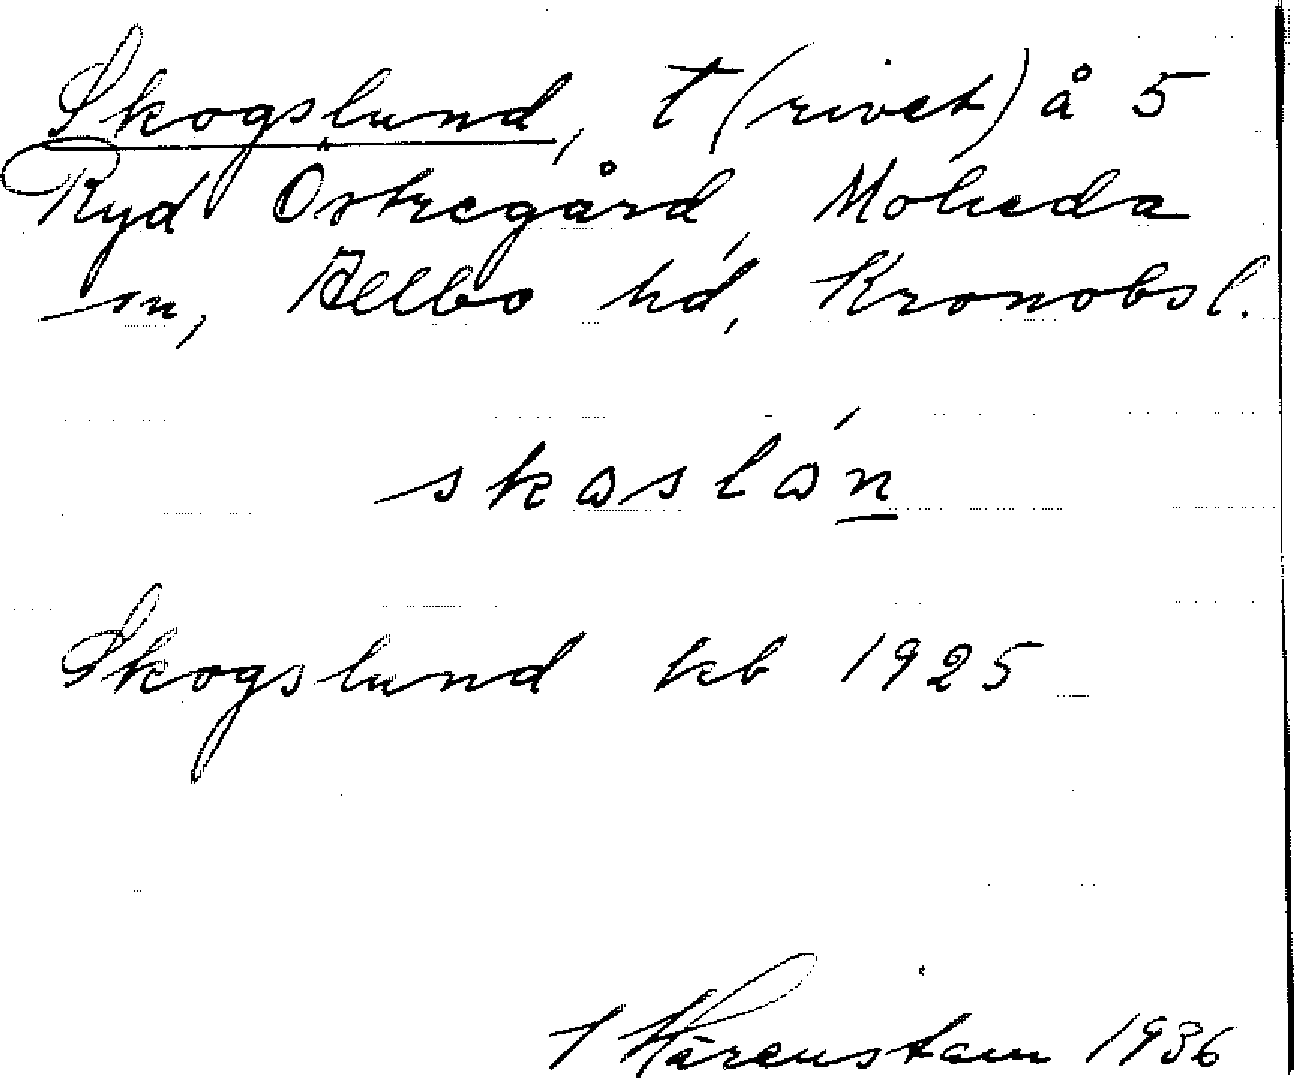 Skogslund, t (rivet) å 5
Ryd Östregård, Moheda
sn, Allbo hd, Kronobs l.
skɷslɷ́n
Skogslund kb 1925
Härenstam 1936